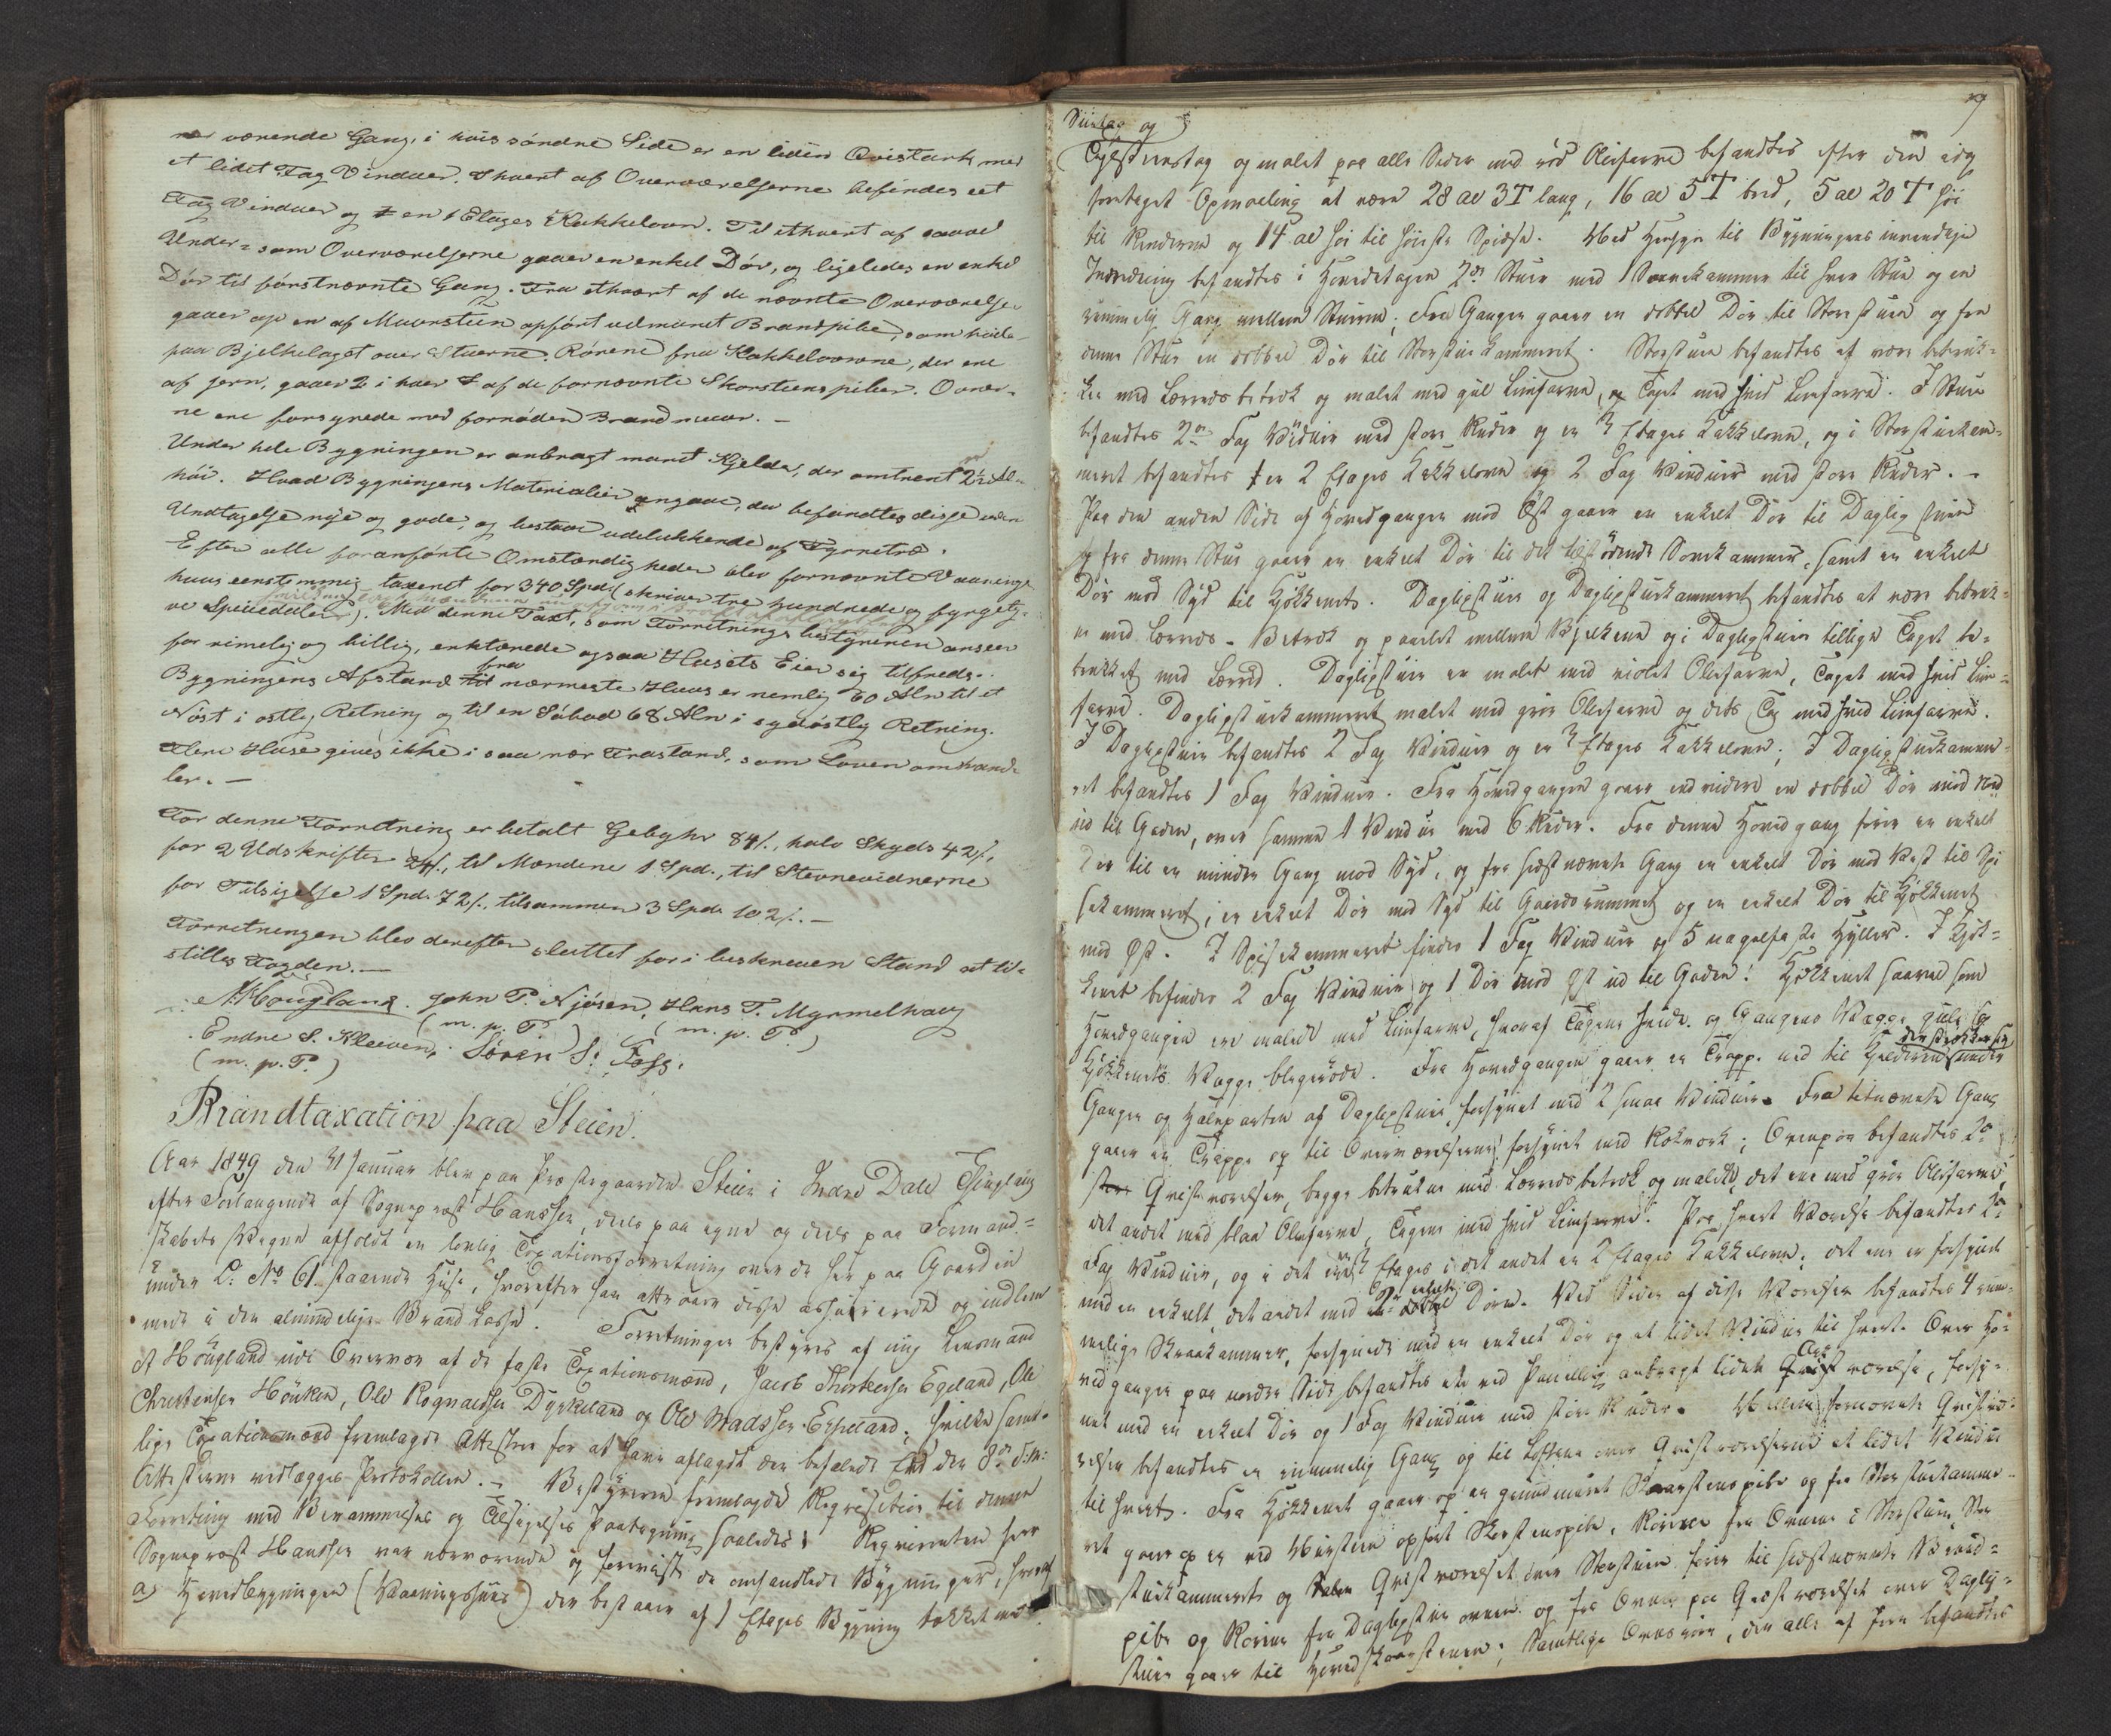 værende Gang, i hvis söndre Side er en liden Qvistark med
et lidet Fag Vinduer. I hvert af Overværelserne befindes eet
Fag Vinduer og en 1 Etages Kakkelovn. Til ethvert af saavel
Under- som Overværelserne gaaer en enkel Dör, og ligeledes en enkel
Dör til förstnævnte Gang. Fra ethvert af de nævnte Overværelser
gaaer op en af Muursteen opfört udmuret Brandpibe, som hvile
paa Bjelkelaget over Stuerne. Rörene fra Kakkelovnene, der ere
af jern, gaaer 2 i hver af de fornævnte Skorsteenspiber. Ovner-
ne ere forsynede med fornöden Brandmuur. -
Under hele Bygningen er anbragt muret Kjelder, der omtrent er 2½ Al.
höi. Hvad Bygningens Materialier angaae, da befandtes disse uden
Undtagelse nye og gode, og bestaae udelukkende af Fyrretræ.
Efter alle foranförte Omstændigheder blev fornævnte Vaanings-
huus eenstemmig taxeret for 340 Spd. (skriver tre hundrede og fyrgety-
ve Speciedaler). Med denne Taxt, som Forretningsbestyreren anseer
for rimelig og billig, erklærede ogsaa Husets Eier sig tilfreds.
Bygningens Afstand fra nærmeste Huus er nemlig 60 Aln til et
Nöst i östlig Retning og til en Söbod 68 Aln i sydöstlig Retning.
Flere Huse gives ikke i saa nær Frastand, som Loven omhand-
ler. -
For denne Forretning er betalt Gebyhr 84 /., halv Skyds 42 /.,
for 2 Udskrifter 24 /., til Mændene 1 Spd., til Stevnevidnerne
for Tilsigelse 1 Spd. 72 /., tilsammen 3 Spd. 102 /. -
Forretningen blev derefter sluttet for i beskreven Stand at til-
stilles Fogden. -
N. Hougland. John P. Njösen, Hans T. Myrmelhaug
(m. p. P.) (m. p. P.)
Endre S. Kleeven, Sören S. Foss.
(m. p. P.)
Brandtaxation paa Steien.
Aar 1849 den 31 Januar blev paa Præstegaarden Steien i Indre Dale Thinglaug
efter Forlangende af Sognepræst Hanssen, deels paa egne og deels paa Formand-
skabets Vegne afholdt en lovlig Taxationsforretning over de her paa Gaarden
under L. No 61 staaende Huse, hvorefter han attraaer disse assurerede og indlem-
mede i den almindelige Brandkasse. Forretningen bestyres af mig Lensmand
A Hougland udi Overvær af de faste Taxationsmænd, Jacob Thorkensen Egeland, Ole
Christensen Höuken, Ole Rognaldsen Dyrkeland og Ole Madssen Espeland; hvilke samt-
lige Taxationsmænd fremlagde Attester for at have aflagt den befalede Eed den 8de d. M.
Attesterne vedlægges Protokollen. - Bestyreren fremlagde Reqvisition til denne
Forretning med Berammelses og Tilsigelses Paategning saaledes: Reqvirenten Herr
Sognepræst Hanssen var nærværende og foreviste de omhandlede Bygninger, hvoraf
a) Hovedbygningen (Vaaningshuus) den bestaaer af 1 Etages Bygning tækket med
og
Teglsteenstag og malet paa alle Sider med röd Oliefarve befandtes efter den idag
foretaget Opmaaling at være 28 al 3 T lang, 16 al 5 T bred, 5 al 20 T höi
til Renderne og 14 al höi til höieste Spidse. Med Hensyn til Bygningens invendige
Indredning befandtes i Hovedetagen 2de Stuer med 1 Sovekammer til hver Stue og en
rummelig Gang mellem Stuerne; Fra Gangen gaaer en dobbel Dör til Storstuen og fra
denne Stue en dobbel Dör til Storstuekammeret. Storstuen befandtes at være betruk-
ken med Lærredsbetræk og malet med gul Limfarve, og Taget med hvid Limfarve. I Stuen
befandtes 2de Fag Vinduer med store Ruder og en 3 Etages Kakkelovn, og i Storstuekam-
meret befandtes en 2 Etages Kakkelovn og 2 Fag Vinduer med store Ruder. -
Paa den anden Side af Hovedgangen mod Öst gaaer en enkelt Dör til Dagligstuen
og fra denne Stue gaaer en enkelt Dör til det tilstödende Sovekammer, samt en enkelt
Dör mod Syd til Kjökkenet. Dagligstuen og Dagligstuekammeret befandtes at være betruk-
ne med Lærreds-Betræk og panelet mellem Bjelkene og i Dagligstuen tillige Taget be-
trukket med Lærred. Dagligstuen er malet med violet Oliefarve, Taget med hvid Lim-
farve. Dagligstuekammeret malet med grön Oliefarve og dets Tag med hvid Limfarve.
I Dagligstuen befandtes 2 Fag Vinduer og en 3 Etages Kakkelovn; I Dagligstuekamme-
ret befandtes 1 Fag Vinduer. Fra Hovedgangen gaaer endvidere en dobbel Dör mod Nord
ud til Gaden, over samme 1 Vindue med 6 Ruder. Fra denne Hovedgang förer en enkelt
Dör til en mindre Gang mod Syd, og fra sidstnævnte Gang en enkelt Dör mod Vest til Spi-
sekammeret, en enkelt Dör mod Syd til Gaardsrummet og en enkelt Dör til Kjökkenet
mod Öst. I Spisekammeret findes 1 Fag Vinduer og 5 nagelfaste Hyller. I Kjök-
kenet befindes 2 Fag Vinduer og 1 Dör mod Öst ud til Gaden. Kjökkenet saavel som
Hovedgangen ere malede med Limfarve, hvoraf Tagene hvide og Gangens Vægge gule og
Kjökkenets Vægge blegröde. Fra Hovedgangen gaaer en Trappe ned til Kjelderen der strækker sig under
Gangen og Halvparten af Dagligstuen, forsynet med 2 smaa Vinduer. Fra bemævnte Gang
gaaer en Trappe op til Overværelserne forsynet med Rækværk; Ovenpaa befandtes 2de
Qvistværelser, begge betrukne med Lærredsbetræk og malede, det ene med grön Oliefarve,
det andet med blaa Oliefarve, Tagene med hvid Limfarve. Paa hvert Værelse befandtes 2de
Fag Vinduer, og i det Etages i det andet en 2 Etages Kakkelovn; det ene er forsynet
med en enkelt, det andet med 2de enkelte Döre. Ved Siden af disse Værelser befandtes 4 rum-
melige Skraakammer, forsynede med en enkelt Dör og et lidet Vindue til hvert. Over Ho-
vedgangen paa nordre Side befandtes et ved Paneling anbragt lidet Ark værelse, forsy-
net med en enkelt Dör og 1 Fag Vinduer med store Ruder. Mellem fornævnte Qvistvæ-
relser befandtes en rummelig Gang og til Lofterne over Qvistværelserne et lidet Vindue
til hvert. Fra Kjökkenet gaaer op en grundmuret Skorsteenspibe og fra Storstuekamme-
ret gaaer op en ved Muursteen opfört Skorsteenspibe. Rörene fra Ovnene i Storstuen, Stor-
stuekammeret og Qvistværelset over Storstuen förer til sidstnævnte Brand-
pibe og Rörene fra Dagligstueovnen og fra Ovnen paa Qvistværelset over Daglig-
stuen gaaer til Hovedskorstenen; Samtlige Ovnsrör, der alle af Jern befandtes